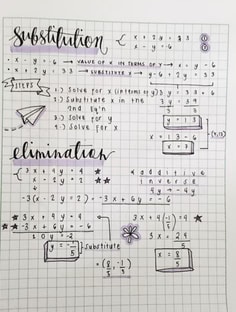 substitution
x + 2y = 33 ①
x - y = -6 ②
• x - y = -6 → VALUE OF X IN TERMS OF Y → x = y - 6
• x + 2y = 33 → SUBSTITUTE X → y - 6 + 2y = 33
STEPS
1.) Solve for x (in terms of y)
2.) Substitute x in the 2nd Eq'n
3.) Solve for y
4.) Solve for x
3y = 39
3 3
y = 13
x = 13 - 6
x = 7
(7,13)
elimination
3x + 4y = 4
x - 2y = 2
additive inverse
4y → -4y
-3(x - 2y = 2) = -3x + 6y = -6
3x + 4y = 4
-3x + 6y = -6
10y = -2
y = -1/5
Substitute
3x + 4(-1/5) = 4
3x = 24/5
x = 8/5
= (8/5, -1/5)